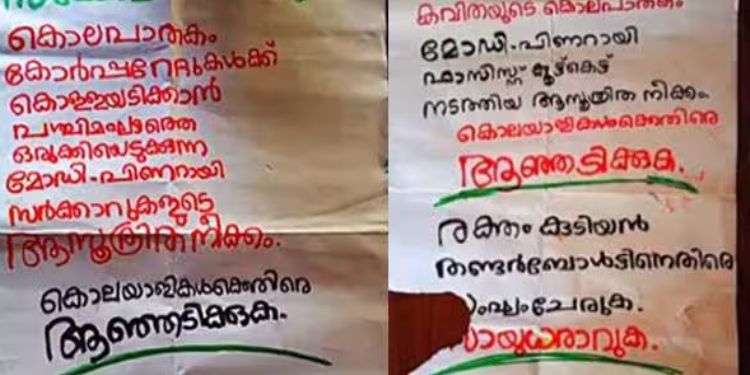 കൊലപാതകം
കോർപ്പറേറ്റുകൾക്ക്
കൊള്ളയടിക്കാൻ
പശ്ചിമഘട്ടത്തെ
ഒരുക്കിയെടുക്കുന്ന
മോഡി-പിണറായി
സർക്കാറുകളുടെ
ആസൂത്രിത നീക്കം.
കൊലയാളികൾക്കെതിരെ
ആഞ്ഞടിക്കുക.
കവിതയുടെ കൊലപാതകം
മോഡി-പിണറായി
ഫാസിസ്റ്റ് കൂട്ട്കെട്ട്
നടത്തിയ ആസൂത്രിത നീക്കം
കൊലയാളികൾക്കെതിരെ
ആഞ്ഞടിക്കുക.
രക്തം കുടിയൻ
തണ്ടർബോൾട്ടിനെതിരെ
ചേരുക.